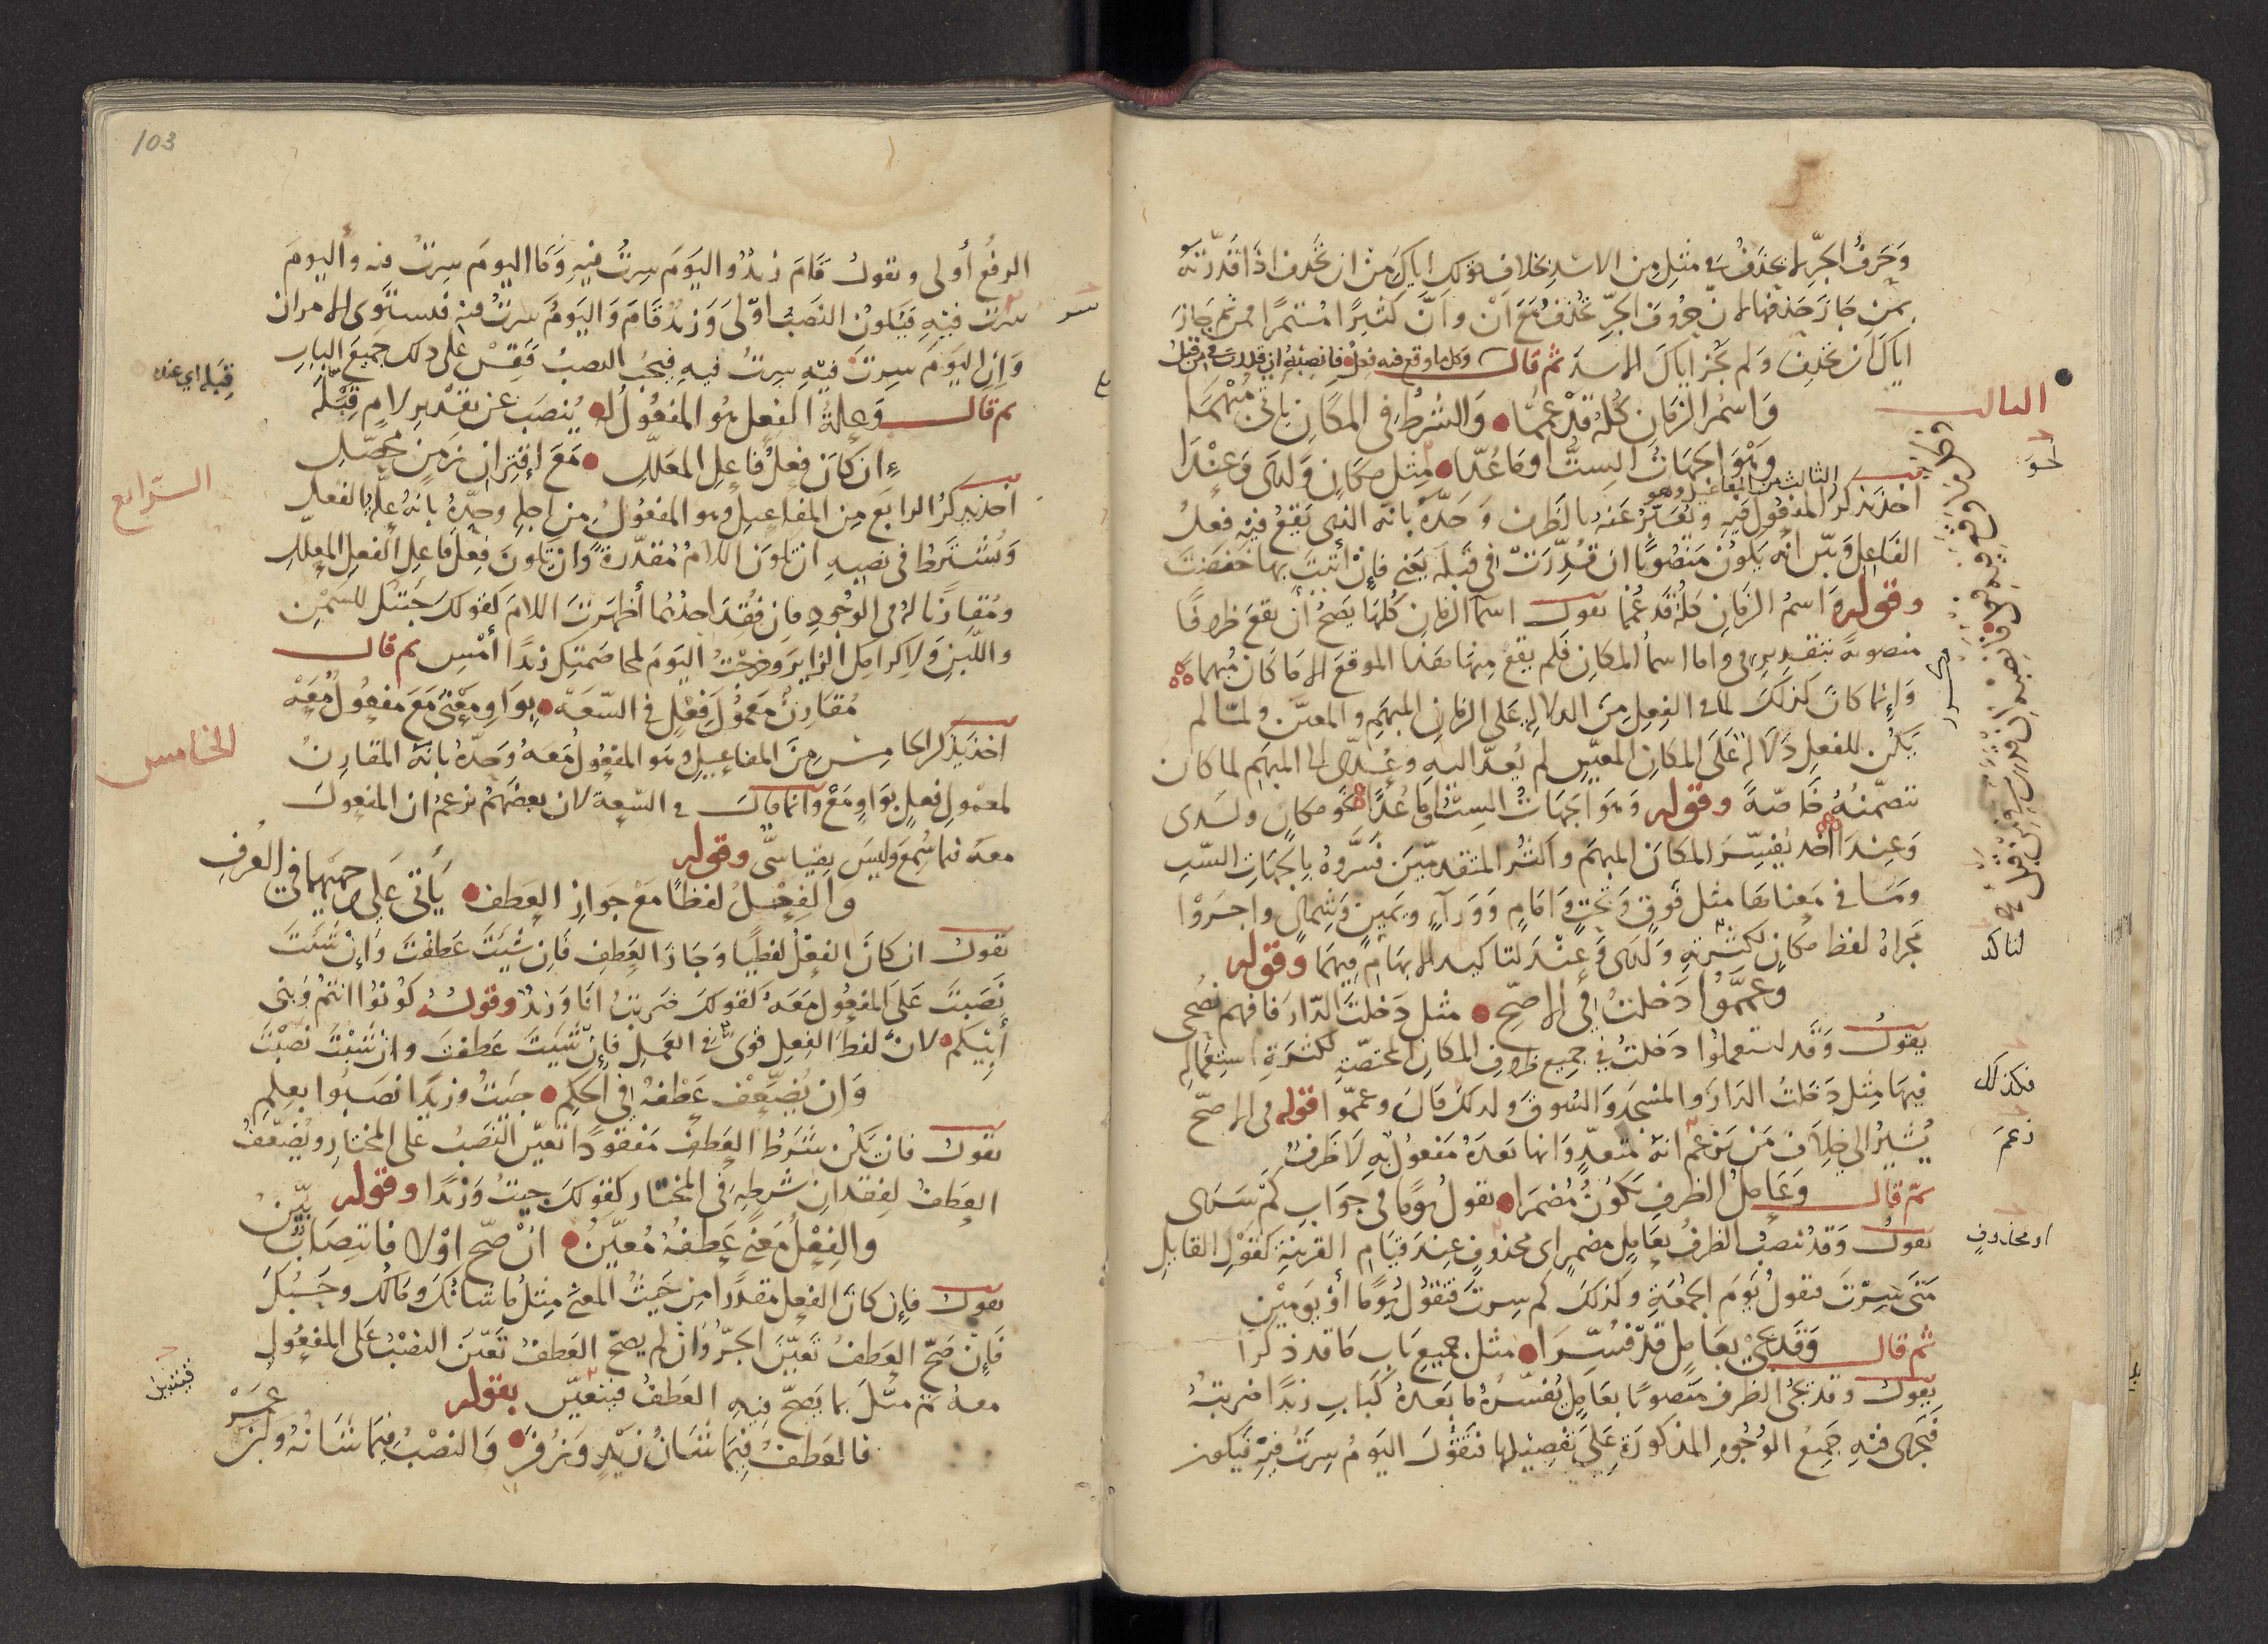 وَحَرفُ الجرِّ لا يُحذَفُ في مثلِ من الاسدِ بخلافِ قولك اياكَ من ان تحذف اذا قدّرته
بمن جازَ حذفها لان حروف الجرِّ تُحذفُ مع أنْ وأنّ كثيرًا مستمرًا فمن ثم جاز
اياكَ ان تحذف ولم يجز اياكَ الاسدَ ثم قال وكل ما وقع فيه فعل فانصبه ان قدرت في من قبل
الثالث
وَاسمُ الزمان كلُّه قد عمّا والشرطُ في المكانِ ان
وهو الجهاتُ الستُّ او ما عُدّا مثل مكانٍ ولدى وعِندَا
نحو
اخذ يذكر الثالث من المفاعيل وهو المفعول فيه ويُعبَّرُ عنه بالظرف وحدَّه بأنه الذي يقعُ فيه فعلُ
الفاعل وبيّن أنه يكونُ منصوبًا ان قُدِّرَت في قبله يعني فإن أتيتَ بها خفضتَ
وقوله وَاسمُ الزمانِ كله قد عُمّا يقول اسما الزمان كلها يصحُّ أن تقعَ ظرفًا
منصوبة بتقدير في واما اسما المكان فلم يقع منها هذا الموقعَ الا ما كان مُبهما
وَإنما كانَ كذلكَ لما في الفعلِ مِنَ الدلالةِ على الزمانِ المبهمِ والمعيّن ولمّا لم
يكن للفعلِ دَلالةٌ عَلَى المكانِ المعيّنِ لم يُعدَّ اليهِ وعُدّى الى المبهمِ لما كان
تتضمّنُهُ خاصّةً وقوله وهو الجهاتُ الستُّ او ما عُدّا نحو مكانٍ ولدى
وَعِندَا اخذ يُفسّرُ المكانَ المبهم واكثرُ المتقدمّينَ فسَّروهُ بالجهاتِ الستِّ
وَمَا في مَعناها مثل فَوقٍ وَتحتٍ وَامامٍ وَوَرآءٍ ويمينٍ وشمالٍ واجرَوْا
مَجراهُ لفظ مكانٍ لكثرتهِ وَلدى وَعِنْدَ لتاكيد الابهامِ فيهما وقوله
لتاكد
وَعمَّمُوا دَخلتُ في الاصحِّ مثل دَخلتُ الدّارَ فافهم نُصحى
يقولُ وَقَد استعملوا دَخلتُ في جميع ظرفِ المكانِ المختصّةِ لكثرةِ استعماله
فيها مثل دَخلتُ الدارَ والمسْجِدَ وَالسُوقَ ولذلك قالَ وعمّموا قوله في الاصحّ
فكذلك
يُشيرُ الى خلافِ مَن يزعم انهُ متعدٍّ وَانما بعدَهُ مَفعولٌ بهِ لا ظرفٌ
زعمَ
ثمّ قال وَعَامِلُ الظرفِ يكونُ مُضمَرا تقولُ يومًا في جَوَابِ كَم سَرى
يقول وَقَدْ يُنصبُ الظرفُ بعَامِلٍ مضمرٍ اى محذوفٍ عِندَ قيَامِ القرينةِ كقوْلِ القايلِ
او محذوفٍ
متى سِرْتَ فتقولُ يَومَ الجُمُعَةِ وكذلكَ كم سِرتَ فتقُولُ يَومًا أوْ يَومَيْنِ
ثم قال وَقَد يجئ بعَامِلٍ قد فُسِّرَا مثل جميعِ بَاب مَا قد ذُكرا
يقول وقد يجئ الظرف منصوبًا بعَامِلٍ يُفسّرُهُ ما بَعدهُ كَبابِ زيدًا ضربتُهُ
فيَجرى فيهِ جميعُ الوُجُوهِ المذكورَةِ عَلى تفصيلها فتقُولُ اليَومُ سِرتُ فيهِ فيكون
103
الرفعُ أولى وتقولُ قَامَ زيدٌ واليَومَ سِرتُ فيهِ وَمَا اليومَ سِرتُ فيه وأليومَ
سرتُ فيهِ فيَكونُ النصَبُ اوّلَى وَزيدٌ قامَ وَاليَومُ سِرتُ فيهِ فيستوى الامران
وَإنِ اليَومَ سِرتَ فيهِ سِرتُ فيهِ فيجبُ النصبُ فَقِسْ عَلى ذلك جميعَ البابِ
ثم قال وَعِلةُ الفعلِ هُو المفعولُ له يُنصَب عَن تقديرِ لامٍ قبلَه
قبله اي عنه
ان كانَ فِعلُ فاعلِ المعلّلِ مَعَ اِقترانِ زمنٍ محصّلِ
الرابع
اخذ يذكرُ الرابعَ مِنَ المفاعيلِ وهو المفعُولُ مِن اجلِهِ وحدّهُ بانهُ علّةُ الفعلِ
وَيُشترَطُ في نصبِهِ ان تكونَ اللامُ مُقدّرةً وان يكونَ فعلَ فاعلِ الفعلِ المعلّلِ
ومُقارنًا لهُ في الوُجُودِ فان فُقِدَ احدُهُما أظهَرتَ اللامَ كقولكَ جئتكَ للسَمْنِ
واللّبَنِ وَلاِكرامِكَ الزايرَ وخرجْتُ اليَومَ لمخاصَمتِكَ زيدًا أمْسِ ثم قال
مُقارِنٌ مَعمُولَ فِعْلٍ في السّعَهْ بِوَاوِ مَعْنى مَعَ مفعُولٌ مَعَهْ
الخامس
اخذ يذكر الخامسَ مِنَ المفاعيلِ وهو المفعُولُ مَعَهُ وحَدّهُ بانهُ المقارِنُ
لمعمُولِ فعلٍ بوَاوِ مَعْ وانما قال في السّعةِ لان بعضَهُم يزعم ان المفعولَ
معهُ فيما سُمِعَ وليسَ بقياسىٍّ وقوله
والفِعْلُ لفظًا مَعْ جوازِ العطفِ يَأتى عَلى وجهَيهما في العُرفِ
يقول ان كانَ الفِعْلُ لفظيًا وَجَازَ العَطفِ فَان شِئتَ عَطفْتَ وَإنْ شئتَ
نَصَبتَ عَلَى المفعُولِ مَعَهُ كقولكَ ضَربتُ انَا وَزيدٌ وقوله كُونُوا انتُم وَبَنى
أبيكم لانّ لفظَ الفِعلِ قوىٌّ في العَملِ فإن شئتَ عَطفتَ وانْ شئْتَ نصَبْتَ
وَان يُضَعَّفْ عَطفُهُ في الحكمِ جئتُ وزيدًا نصَبُوا بعلمِ
يقول فان يَكُن شَرطُ العَطفِ مَفقُودًا تعيّن النّصَبُ عَلى المختارِ ويُضعّفُ
العَطفُ لِفقدانِ شَرطِهِ في المختار كقولكَ جئتُ وَزيدًا وقوله
والفِعْلُ مَعنىً عَطفُهُ مُعيَّنُ انْ صَحَّ اوْلا فانتِصَابٌ بيّنُ
يقول فان كانَ الفعل مقدرًا من حَيثُ المعنَى مِثلُ مَا شَانُكَ ومَالك وحَسْبُكَ
فَإن صَحّ العَطفُ تَعيَّنَ الجرُّ وَان لم يصحّ العَطفُ تعيّن النصَبُ عَلى المفعُولِ
معهُ ثم مثّلَ بما يَصحُّ فيهِ العَطفُ فيتعيّن بقوله
فيتبين
فالعَطفُ فيمَا شَانُ زيْدٍ وَزُفَرْ وَالنصْبُ فِيمَا شَانُهُ وَابنَ عُمَرْ